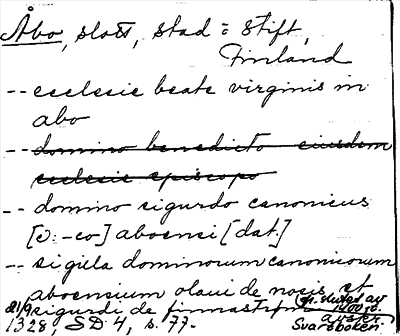 Åbo, slott, stad o stift,
Finland
-- ecclesie beate virginis in
abo
-- domino benedicto eiusdem
ecclesie episcopo
-- domino sigurdo canonicus
[ɔ: -co] aboensi [dat.]
-- sigilla dominorum canonicorum
aboensium olaui de nosis et
sigurdi de finnastrom
21/9 1328, SD 4, s. 77.
Svartboken.